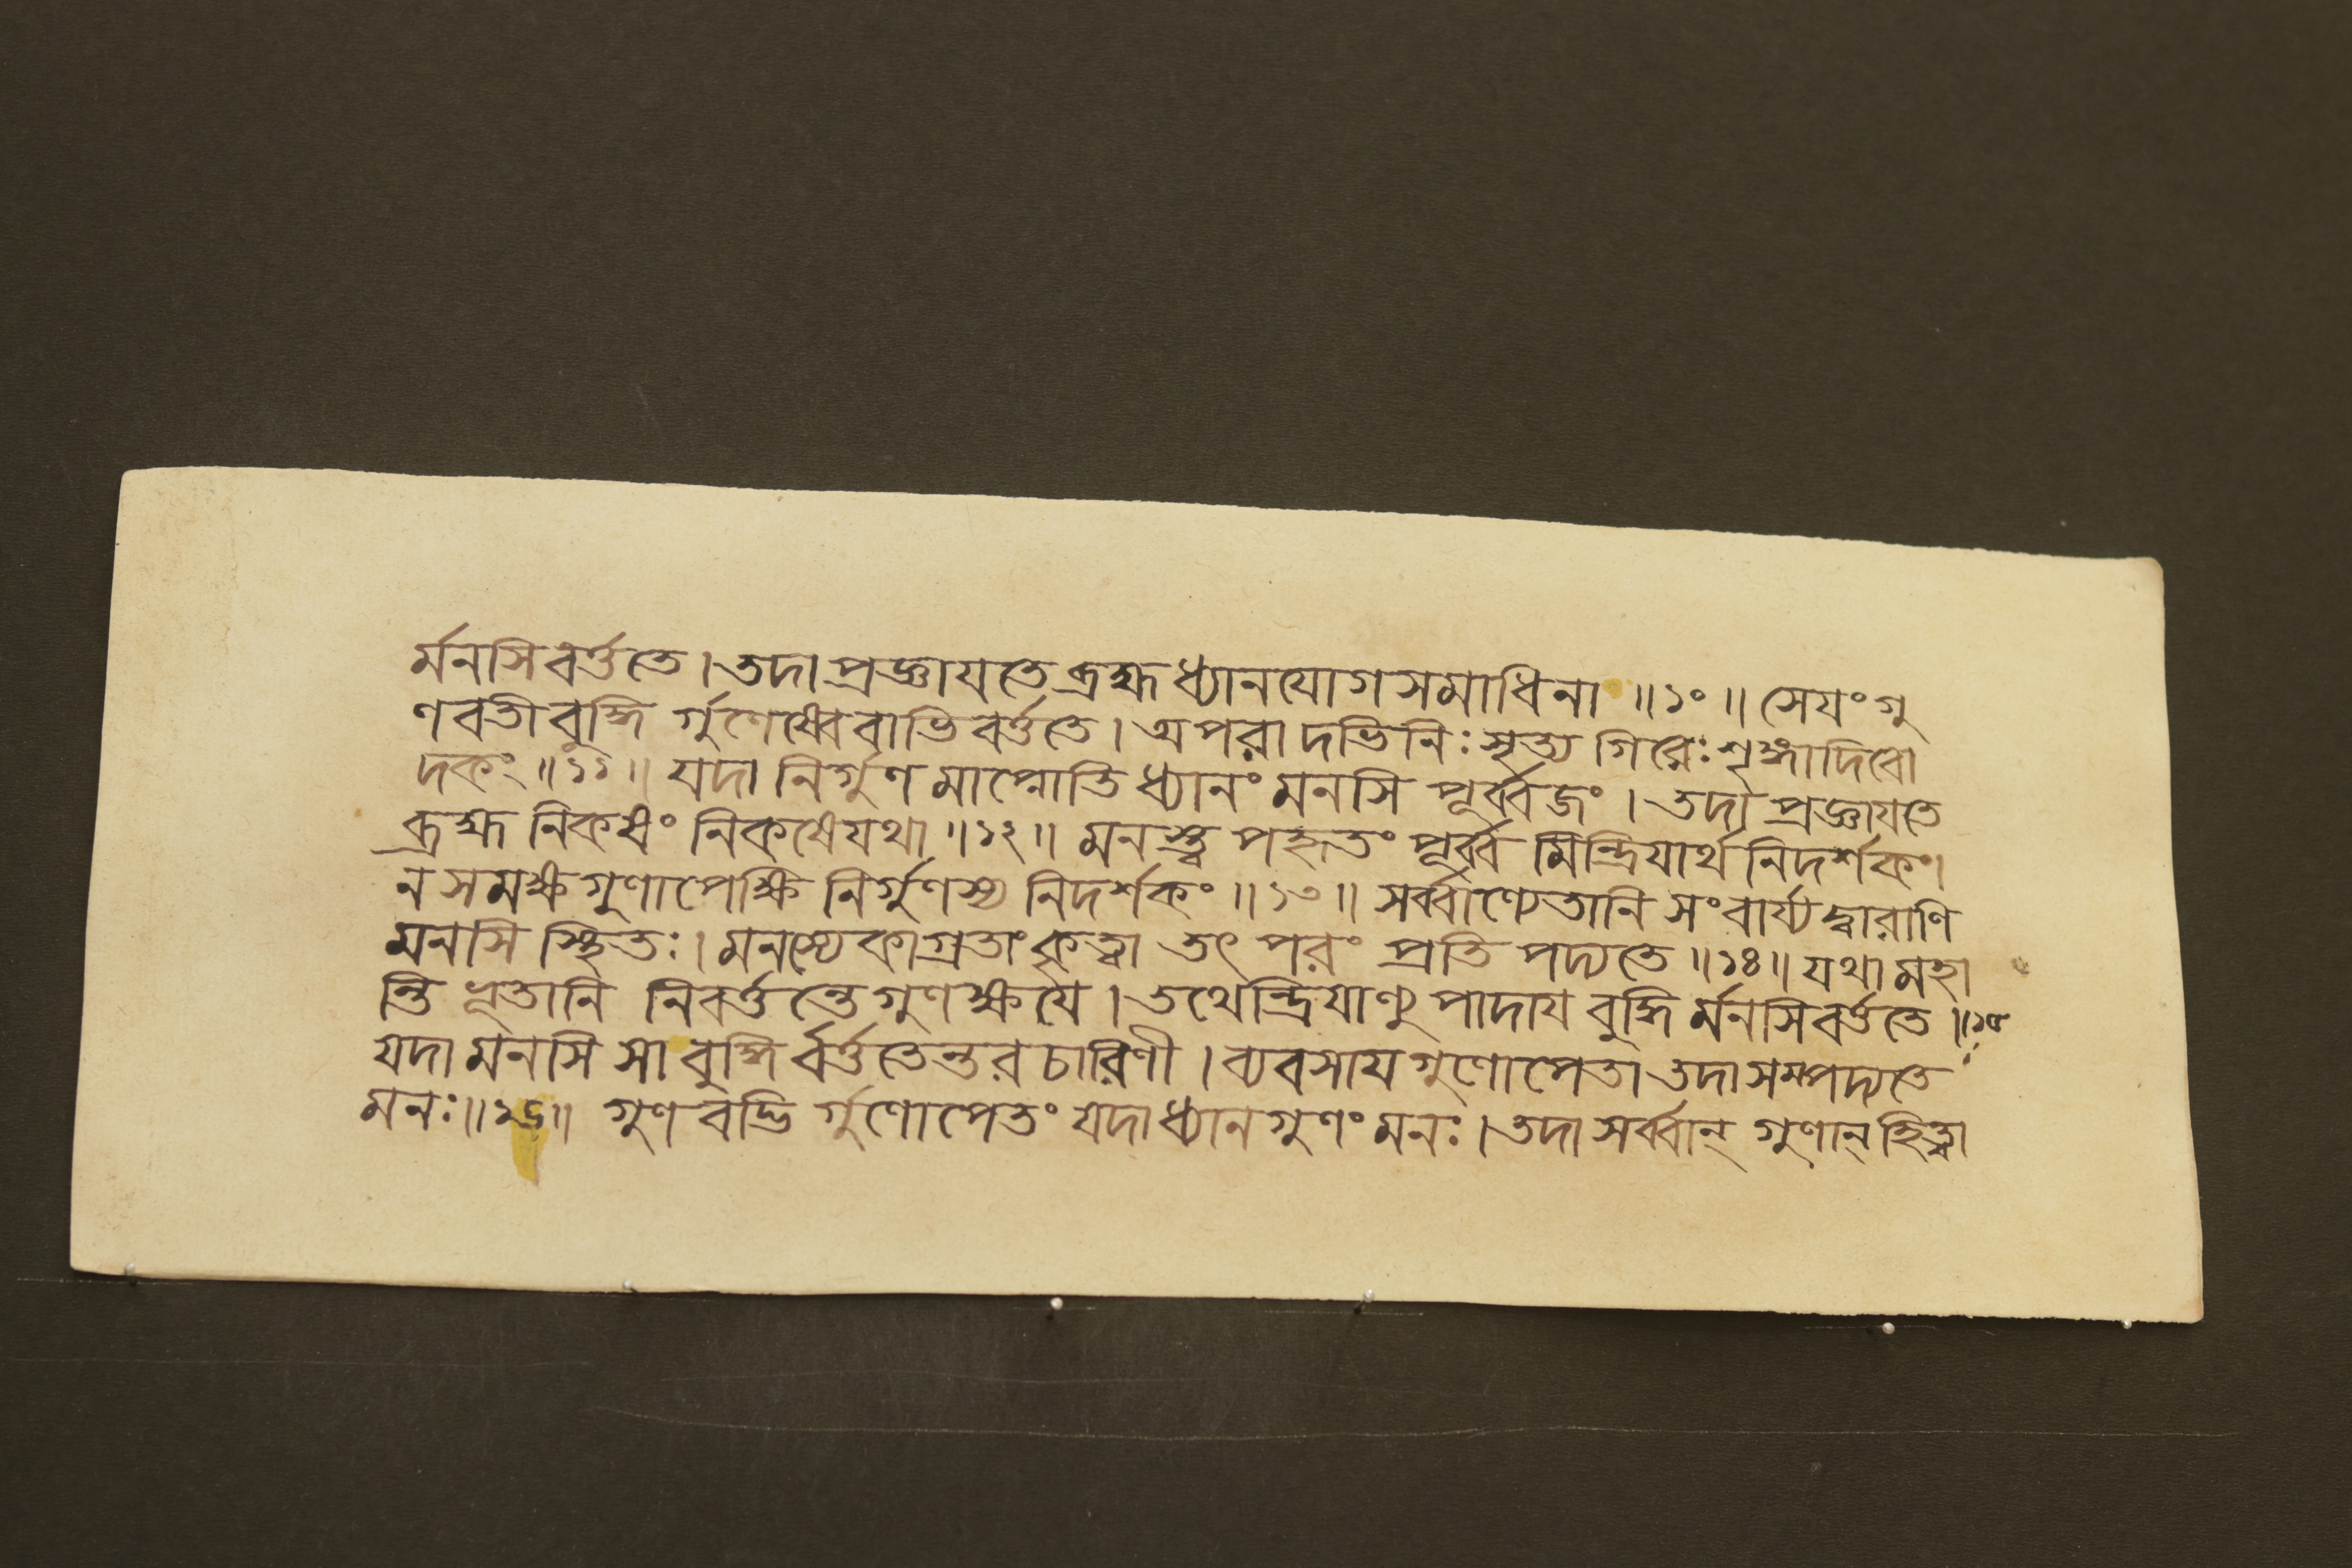 র্মনসি বর্ত্ততে । তদা প্রজ্ঞাযতে ব্রহ্ম ধ্যানযোগসমাধিনা ॥ ১০ ॥ সেযং গু
ণবতী বুদ্ধি র্গুণেষ্বেবাভিবর্ত্ততে । অপরাদভিনিঃসৃত্য গিরেঃ শৃঙ্গাদিবো
দকং ॥ ১১ ॥ যদা নির্গুণমাপ্নোতি ধ্যানং মনসি পূর্ব্বজং । তদা প্রজ্ঞাযতে
ব্রহ্ম নিকষং নিকষে যথা ॥ ১২ ॥ মনস্ত্বপহৃতং পূর্ব্ব মিন্দ্রিযার্থ নিদর্শকং ।
ন সমক্ষ গুণাপেক্ষি নির্গুণস্য নিদর্শকং ॥ ১৩ ॥ সর্ব্বাণ্যেতানি সংবার্য্য দ্বারাণি
মনসি স্থিতঃ । মনস্যেকাগ্রতাং কৃত্বা তৎ পরং প্রতিপদ্যতে ॥ ১৪ ॥ যথা মহা
ন্তি ভূতানি নিবর্ত্তন্তে গুণক্ষযে । তথেন্দ্রিযাণ্যুপাদায বুদ্ধি র্মনসি বর্ত্ততে ॥ ১৫
যদা মনসি সা বুদ্ধি র্বর্ত্ততেন্তরচারিণী । ব্যবসায গুণোপেতা তদা সম্পদ্যতে
মনঃ ॥ ১৬ ॥ গুণবদ্ভি র্গুণোপেতং যদা ধ্যানগুণং মনঃ । তদা সর্ব্বান্ গুণান্ হিত্বা